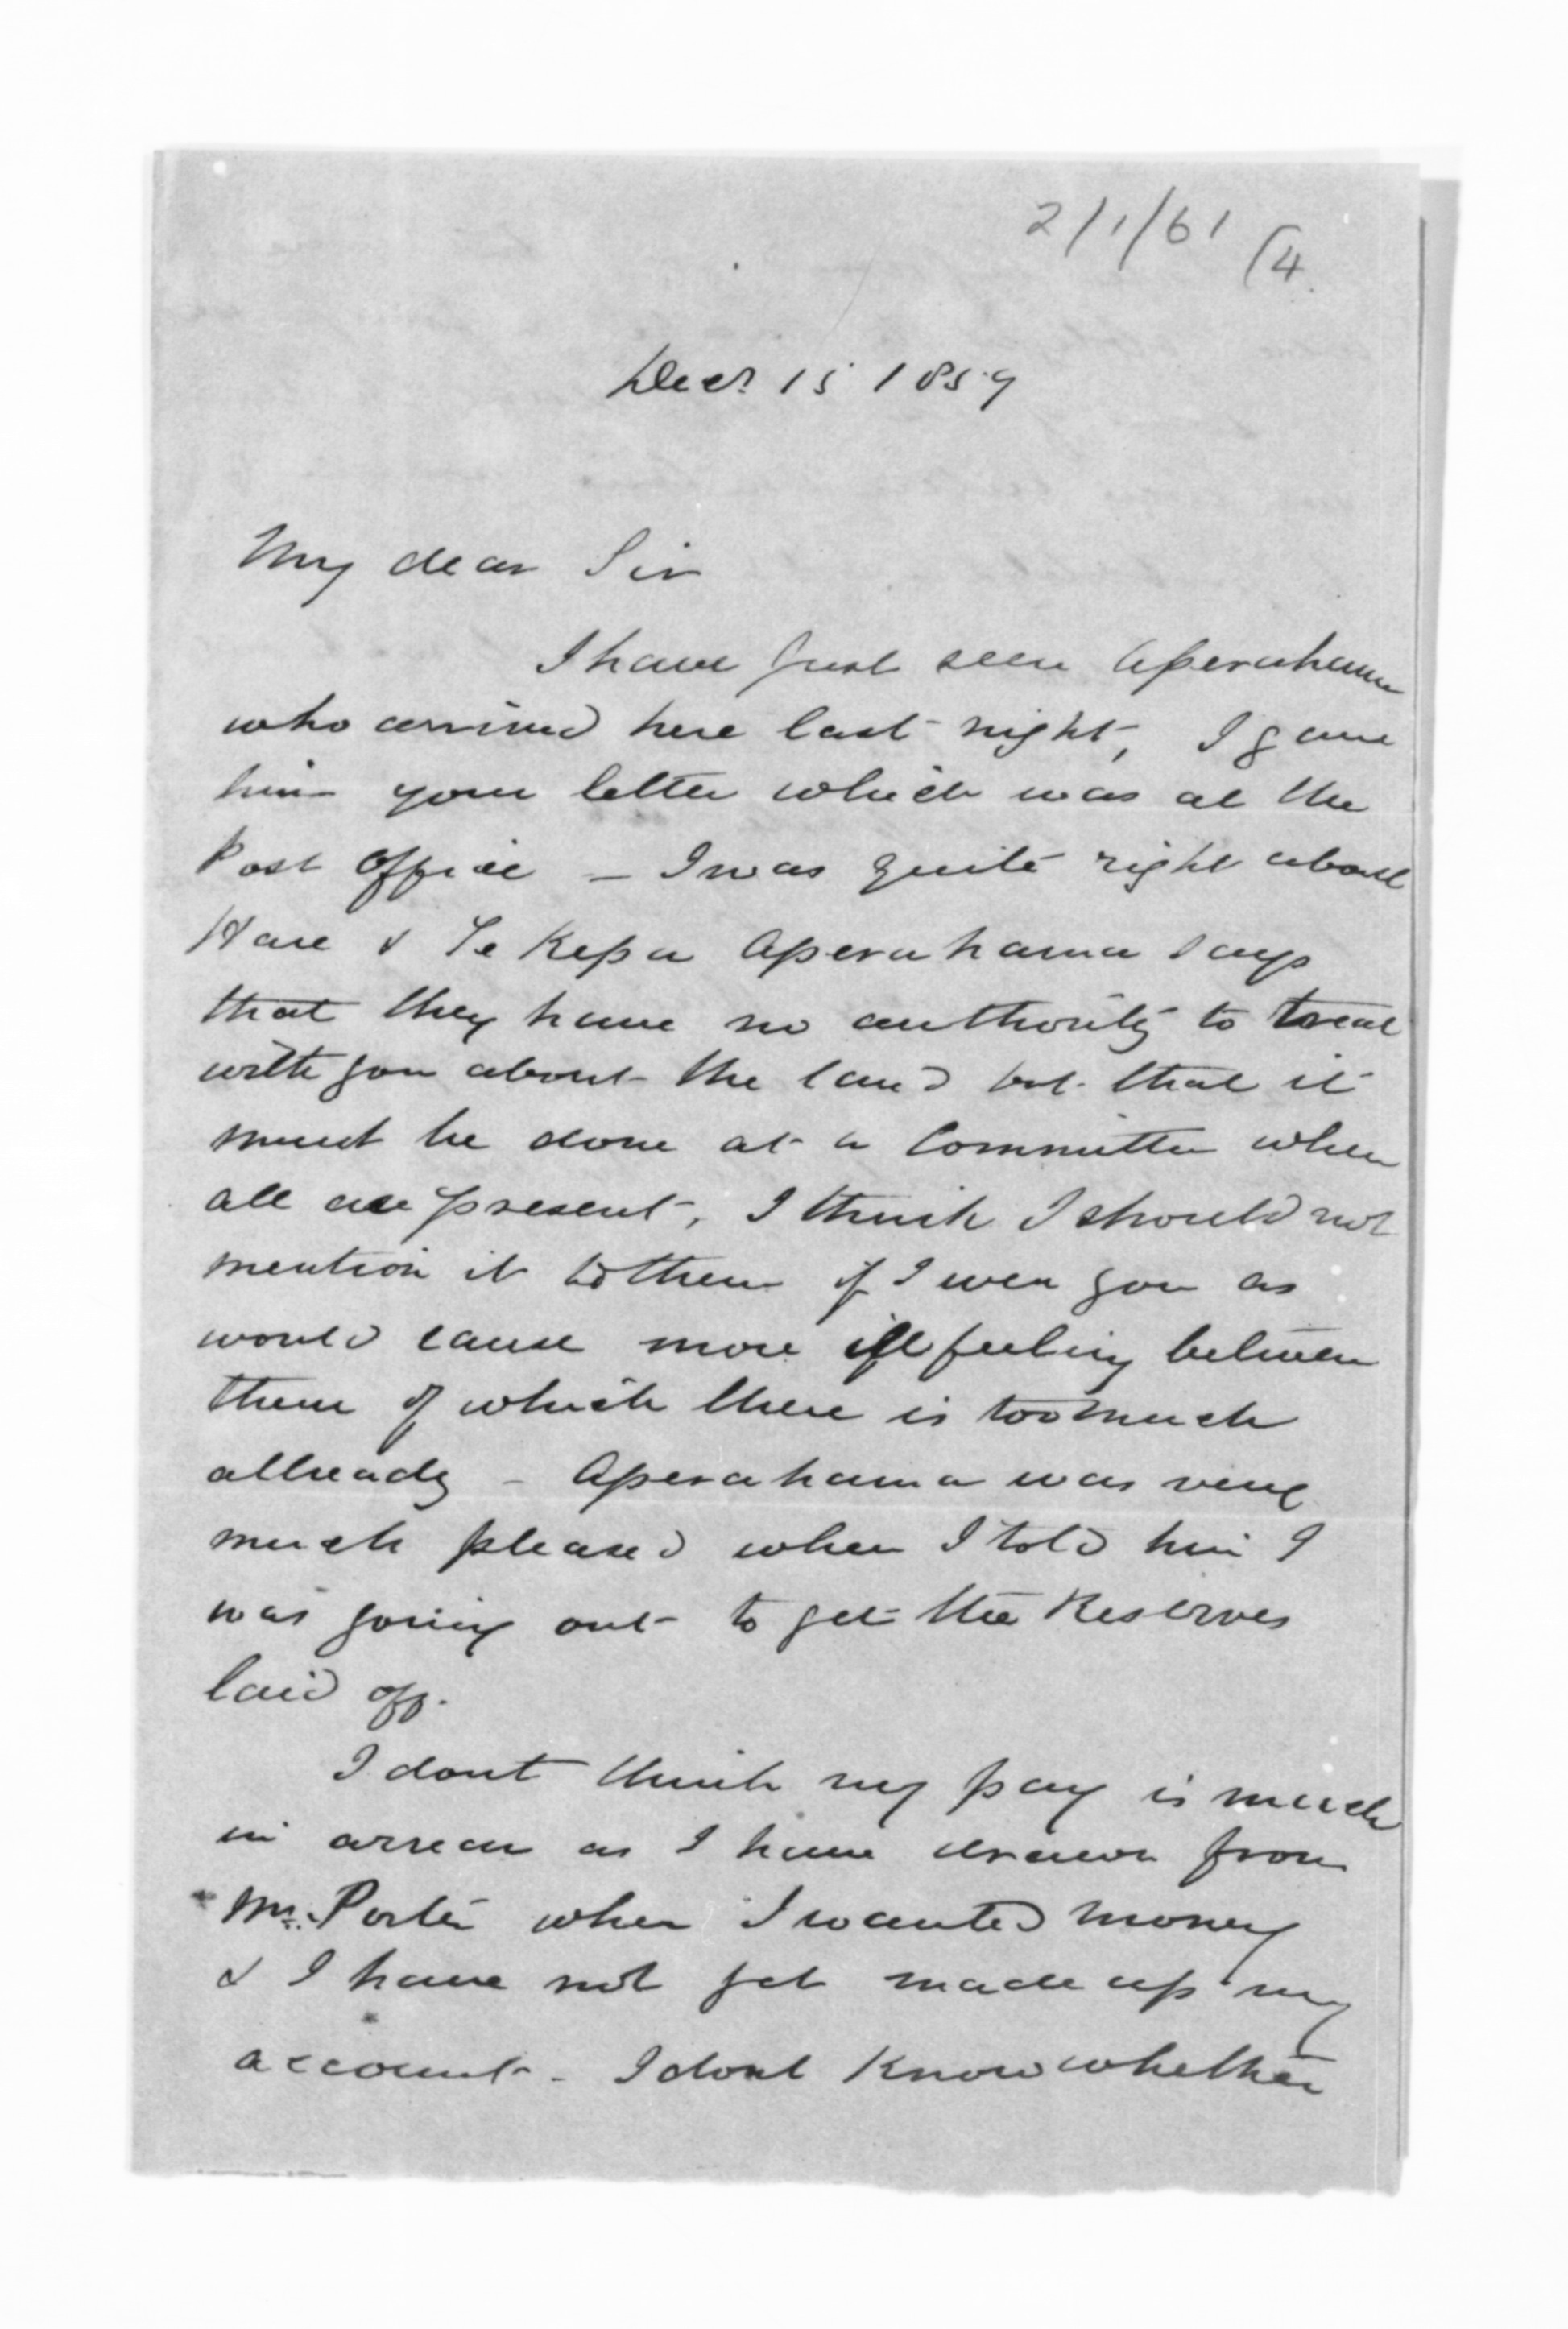 2/1/61 (4
Decr 15 1859
My dear Sir
I have just seen Aperahama
who arrived here last night, I gave
him your letter which was at the
Post Office - I was quite right about
Hare & Te Kepa Aperahama says
that they have no authority to treat
with you about the land but that it
must be done at a Committee when
all are present, I think I should not
mention it to them if I were you as
would cause more ill feeling between
them of which there is too much
allready - Aperahama was very
much pleased when I told him I
was going out to get the Reserves
laid off.
I dont think my pay is much
in arrear as I have drawn from
Mr. Porter when I wanted money
& I have not yet made up my
account - I dont know whether